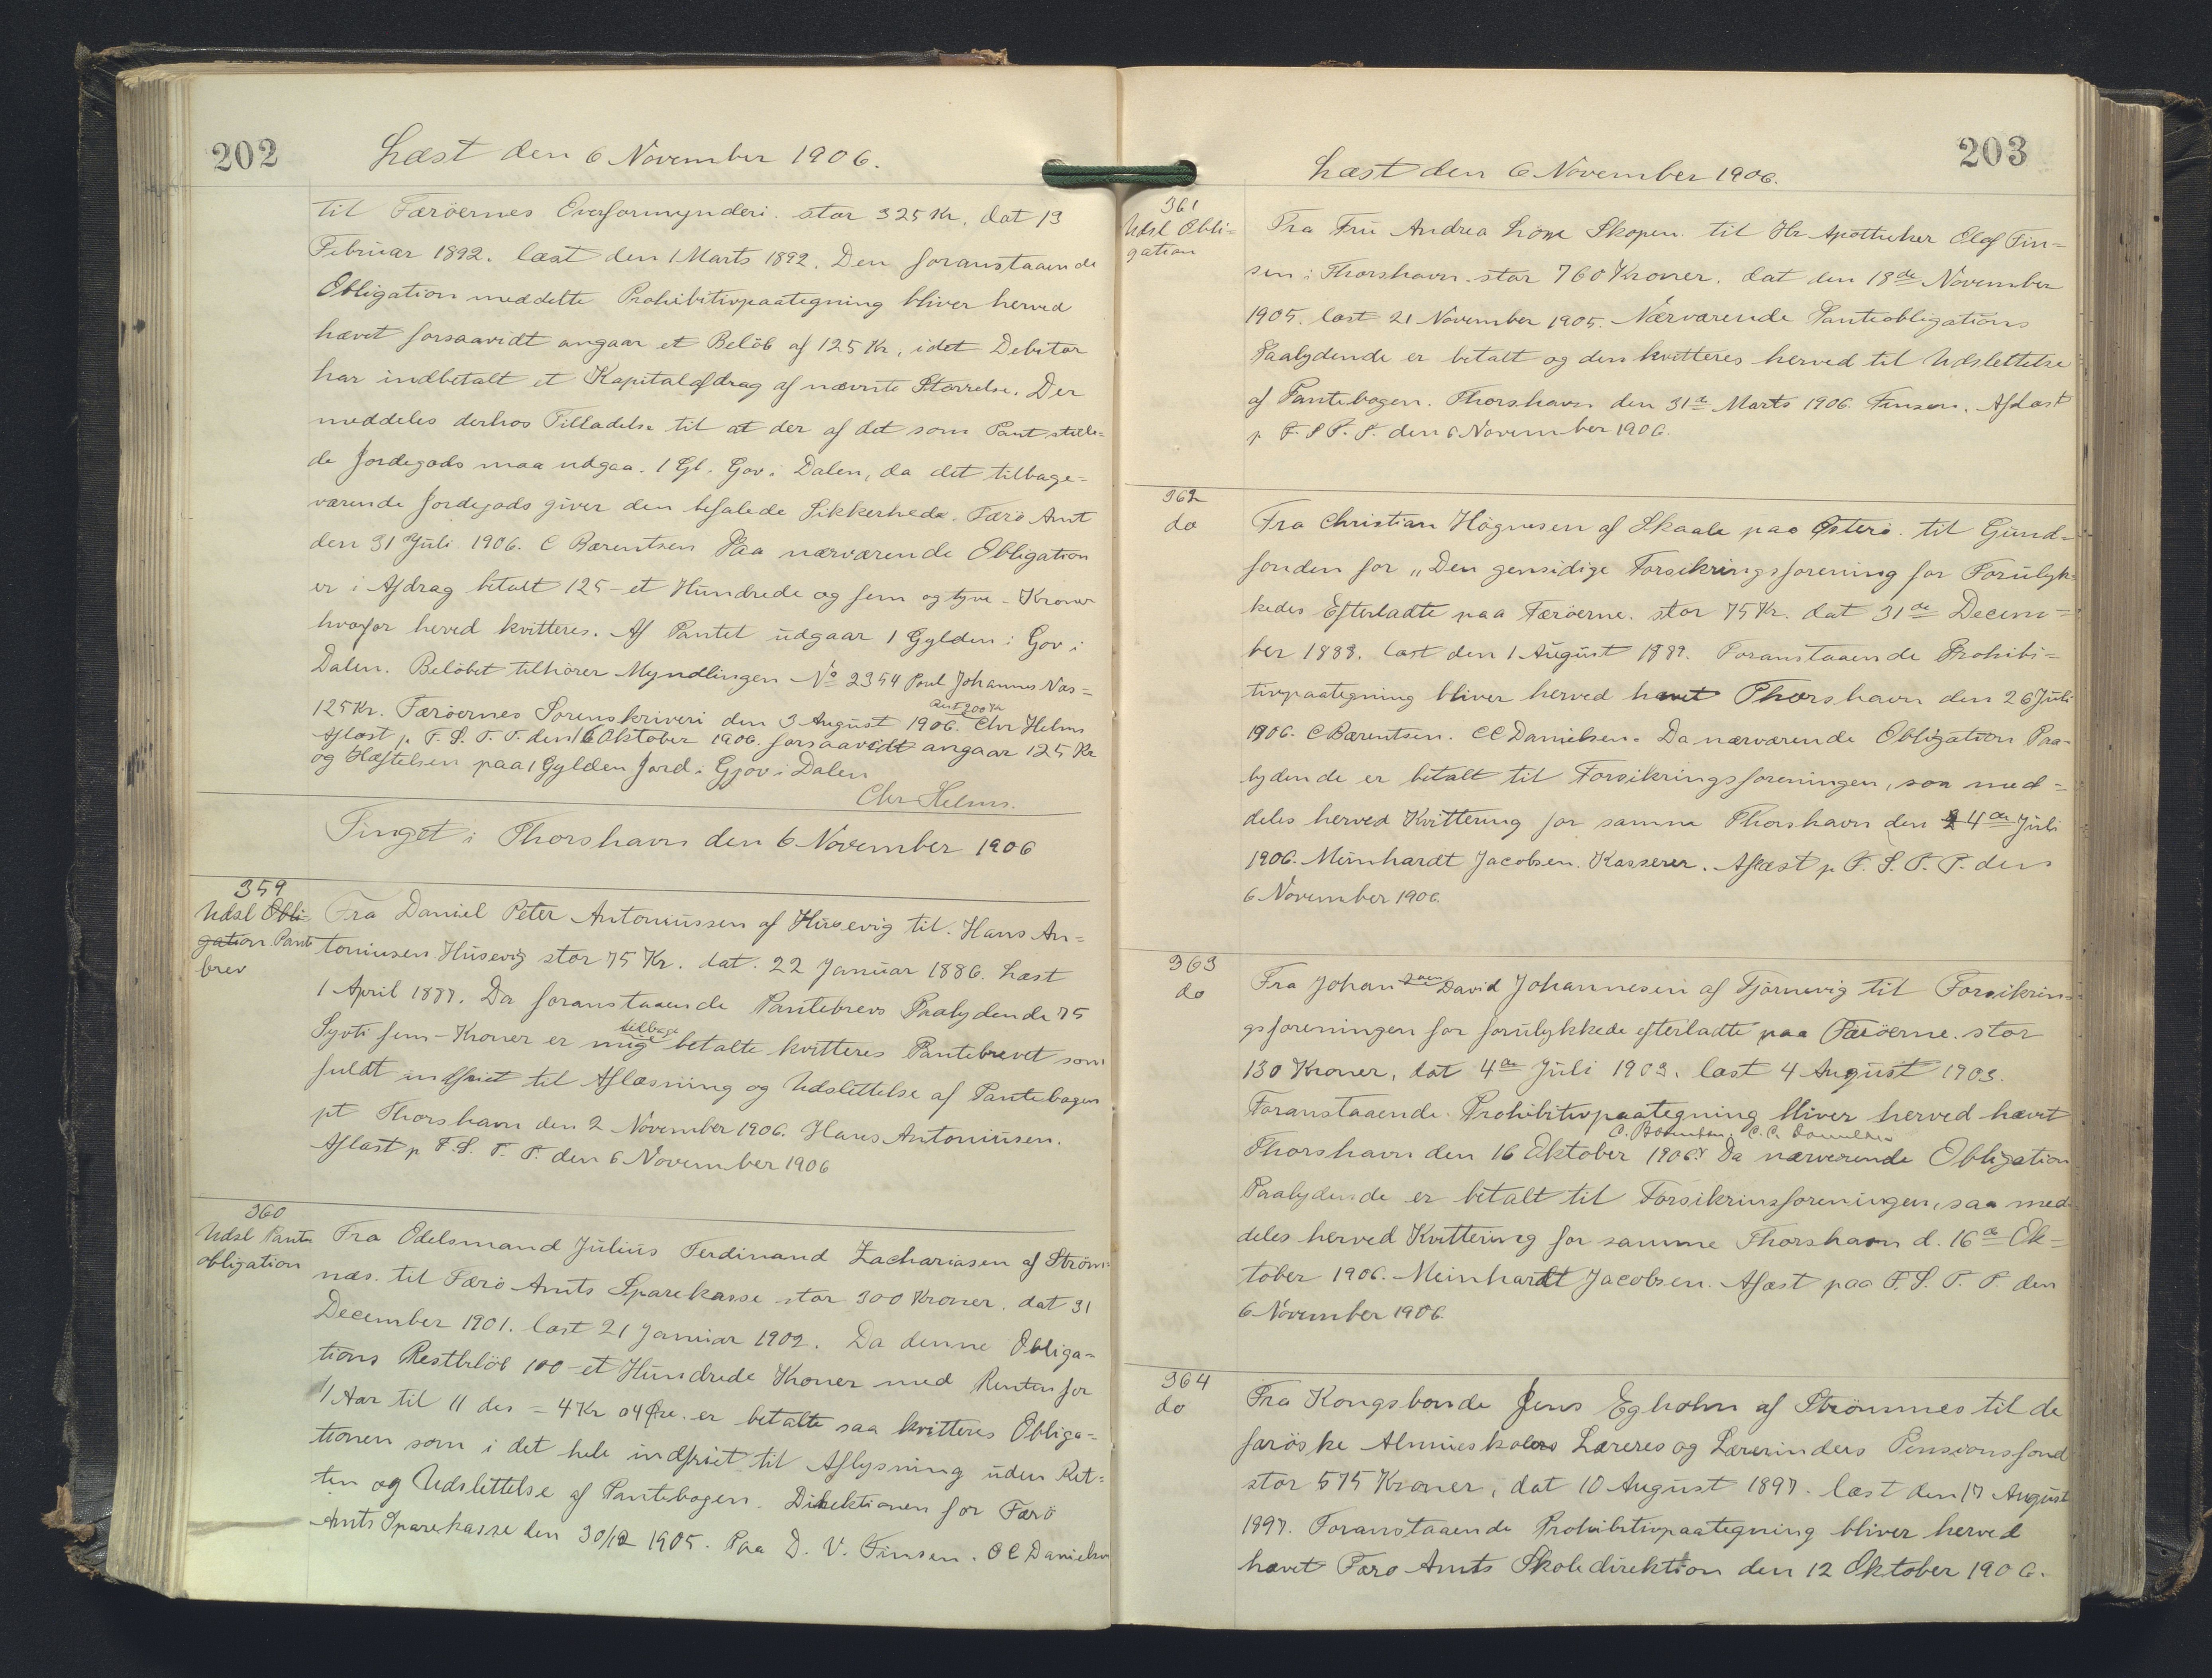 202
Læst den 6 November 1906.
til Færöernes Overformynderi. stor 325 Kr. dat 13
Februar 1892. læst den 1 Marts 1892. Den foranstaaende
Obligation meddelte Prohibitivpaategning bliver herved
hævet forsaavidt angaar et Belöb af 125 Kr, idet Debitor
har indbetalt et Kapitalafdrag af nævnte Störrelse. Der
meddeles derhos Tilladelse til at der af det som Pant stille=
de Jordegods maa udgaa. 1 Gl. Gov i Dalen, da det tilbage=
værende Jordegods giver den befalede Sikkerhede. Færö Amt
den 31 Juli 1906. C Bærentsen Paa nærværende Obligation
er i Afdrag betalt 125 - et Hundrede og fem og tyve - Kroner
hvorfor herved kvitteres. Af Pantet udgaar 1 Gylden i Gov i
Dalen. Belöbet tilhörer Myndlingen No 2354 Poul Johannes Næs =
125 Kr. Færöernes Sorenskriveri den 3 August 1906. Rest 200 Kr Chr Helms
Aflæst p F. S. T. P. den 16 Oktober 1906. forsaavidt angaar 125 Kr
og Hæftelsen paa 1 Gylden Jord i Gjov i Dalen
Chr Helms.
Tinget i Thorshavn den 6 November 1906
359
Udsl Obli=
gation Pante
brev
Fra Daniel Peter Antoniussen af Husevig til Hans An=
toniusen Husevig stor 75 Kr. dat. 22 Januar 1886. Læst
1 April 1887. Da foranstaaende Pantebrevs Paalydende 75
Syvti fem - Kroner er mig tilbage betalte kvitteres Pantebrevet som
fuldt indfriet til Aflæsning og Udslettelse af Pantebogen
pt Thorshavn den 2 November 1906. Hans Antoniusen.
Aflæst p F. S. T. P. den 6 November 1906
360
Udsl Pante
obligation
Fra Odelsmand Julius Ferdinand Zachariasen af Ström=
næs. til Færö Amts Sparekasse stor 300 Kroner. dat 31
December 1901. læst 21 Januar 1902. Da denne Obliga=
tions Restbelöb 100 - et Hundrede Kroner med Renten for
1 Aar til 11 des = 4 Kr 04 Öre. er betalte saa kvitteres Obliga=
tionen som i det hele indfriet til Aflysning uden Ret=
ten og Udslettelse af Pantebogen. Direktionen for Færö
Amts Sparekasse den 30/12 1905. Paa D. V. Finsen. O C Danielsen
203
Læst den 6 November 1906.
361
Udsl Obli=
gation
Fra Fru Andrea Skopen. til Hr Apotheker Olaf Fin=
sen i Thorshavn. stor 760 Kroner. dat den 18de November
1905. læst 21 November 1905. Nærværende Panteobligations
Paalydende er betalt og den kvitteres herved til Udslettelse
af Pantebogen. Thorshavn den 31te Marts 1906. Finsen. Aflæst
p F. S T. P. den 6 November 1906.
362
do
Fra Christian Högnesen af Skaale paa Österö. til Gund=
fonden for „Den gensidige Forsikringsforening for Forulyk=
kedes Efterladte paa Færöerne. stor 75 Kr. dat 31de Decem=
ber 1888. læst den 1 August 1889. Foranstaaende Prohibi=
tivpaategning bliver herved hævet Thorshavn den 26 Juli
1906. C Bærentsen. CC Danielsen. Da nærværende Obligation Paa=
lydende er betalt til Forsikringsforeningen, saa med=
deles herved Kvittering for samme Thorshavn den 24de Juli
1906. Meinhardt Jacobsen. Kasserer. Aflæst p F. S. T. P. den
6 November 1906.
363
do
Fra Johan David Johannesen af Tjörnevig til Forsikrin=
gsforeningen for forulykkede efterladte paa Færöerne. stor
130 Kroner, dat 4de Juli 1903. læst 4 August 1903.
Foranstaaende Prohibitivpaategning bliver herved hævet
C. Bærentsen. C. C. Danielsen
Thorshavn den 16 Oktober 1906. Da nærværende Obligation
Paalydende er betalt til Forsikrinsforeningen, saa med
deles herved Kvittering for samme Thorshavn d. 16de Ok=
tober 1906. Meinhardt Jacobsen. Aflæst paa F. S. T. P. den
6 November 1906.
364
do
Fra Kongsbonde Jens Egholm af Strömnes til de
færöske Almueskolers Læreres og Lærerinders Pensionsfond
stor 575 Kroner, dat 10 August 1897. læst den 17 August
1897. Foranstaaende Prohibitivpaategning bliver herved
hævet Færö Amts Skoledirektion den 12 Oktober 1906.